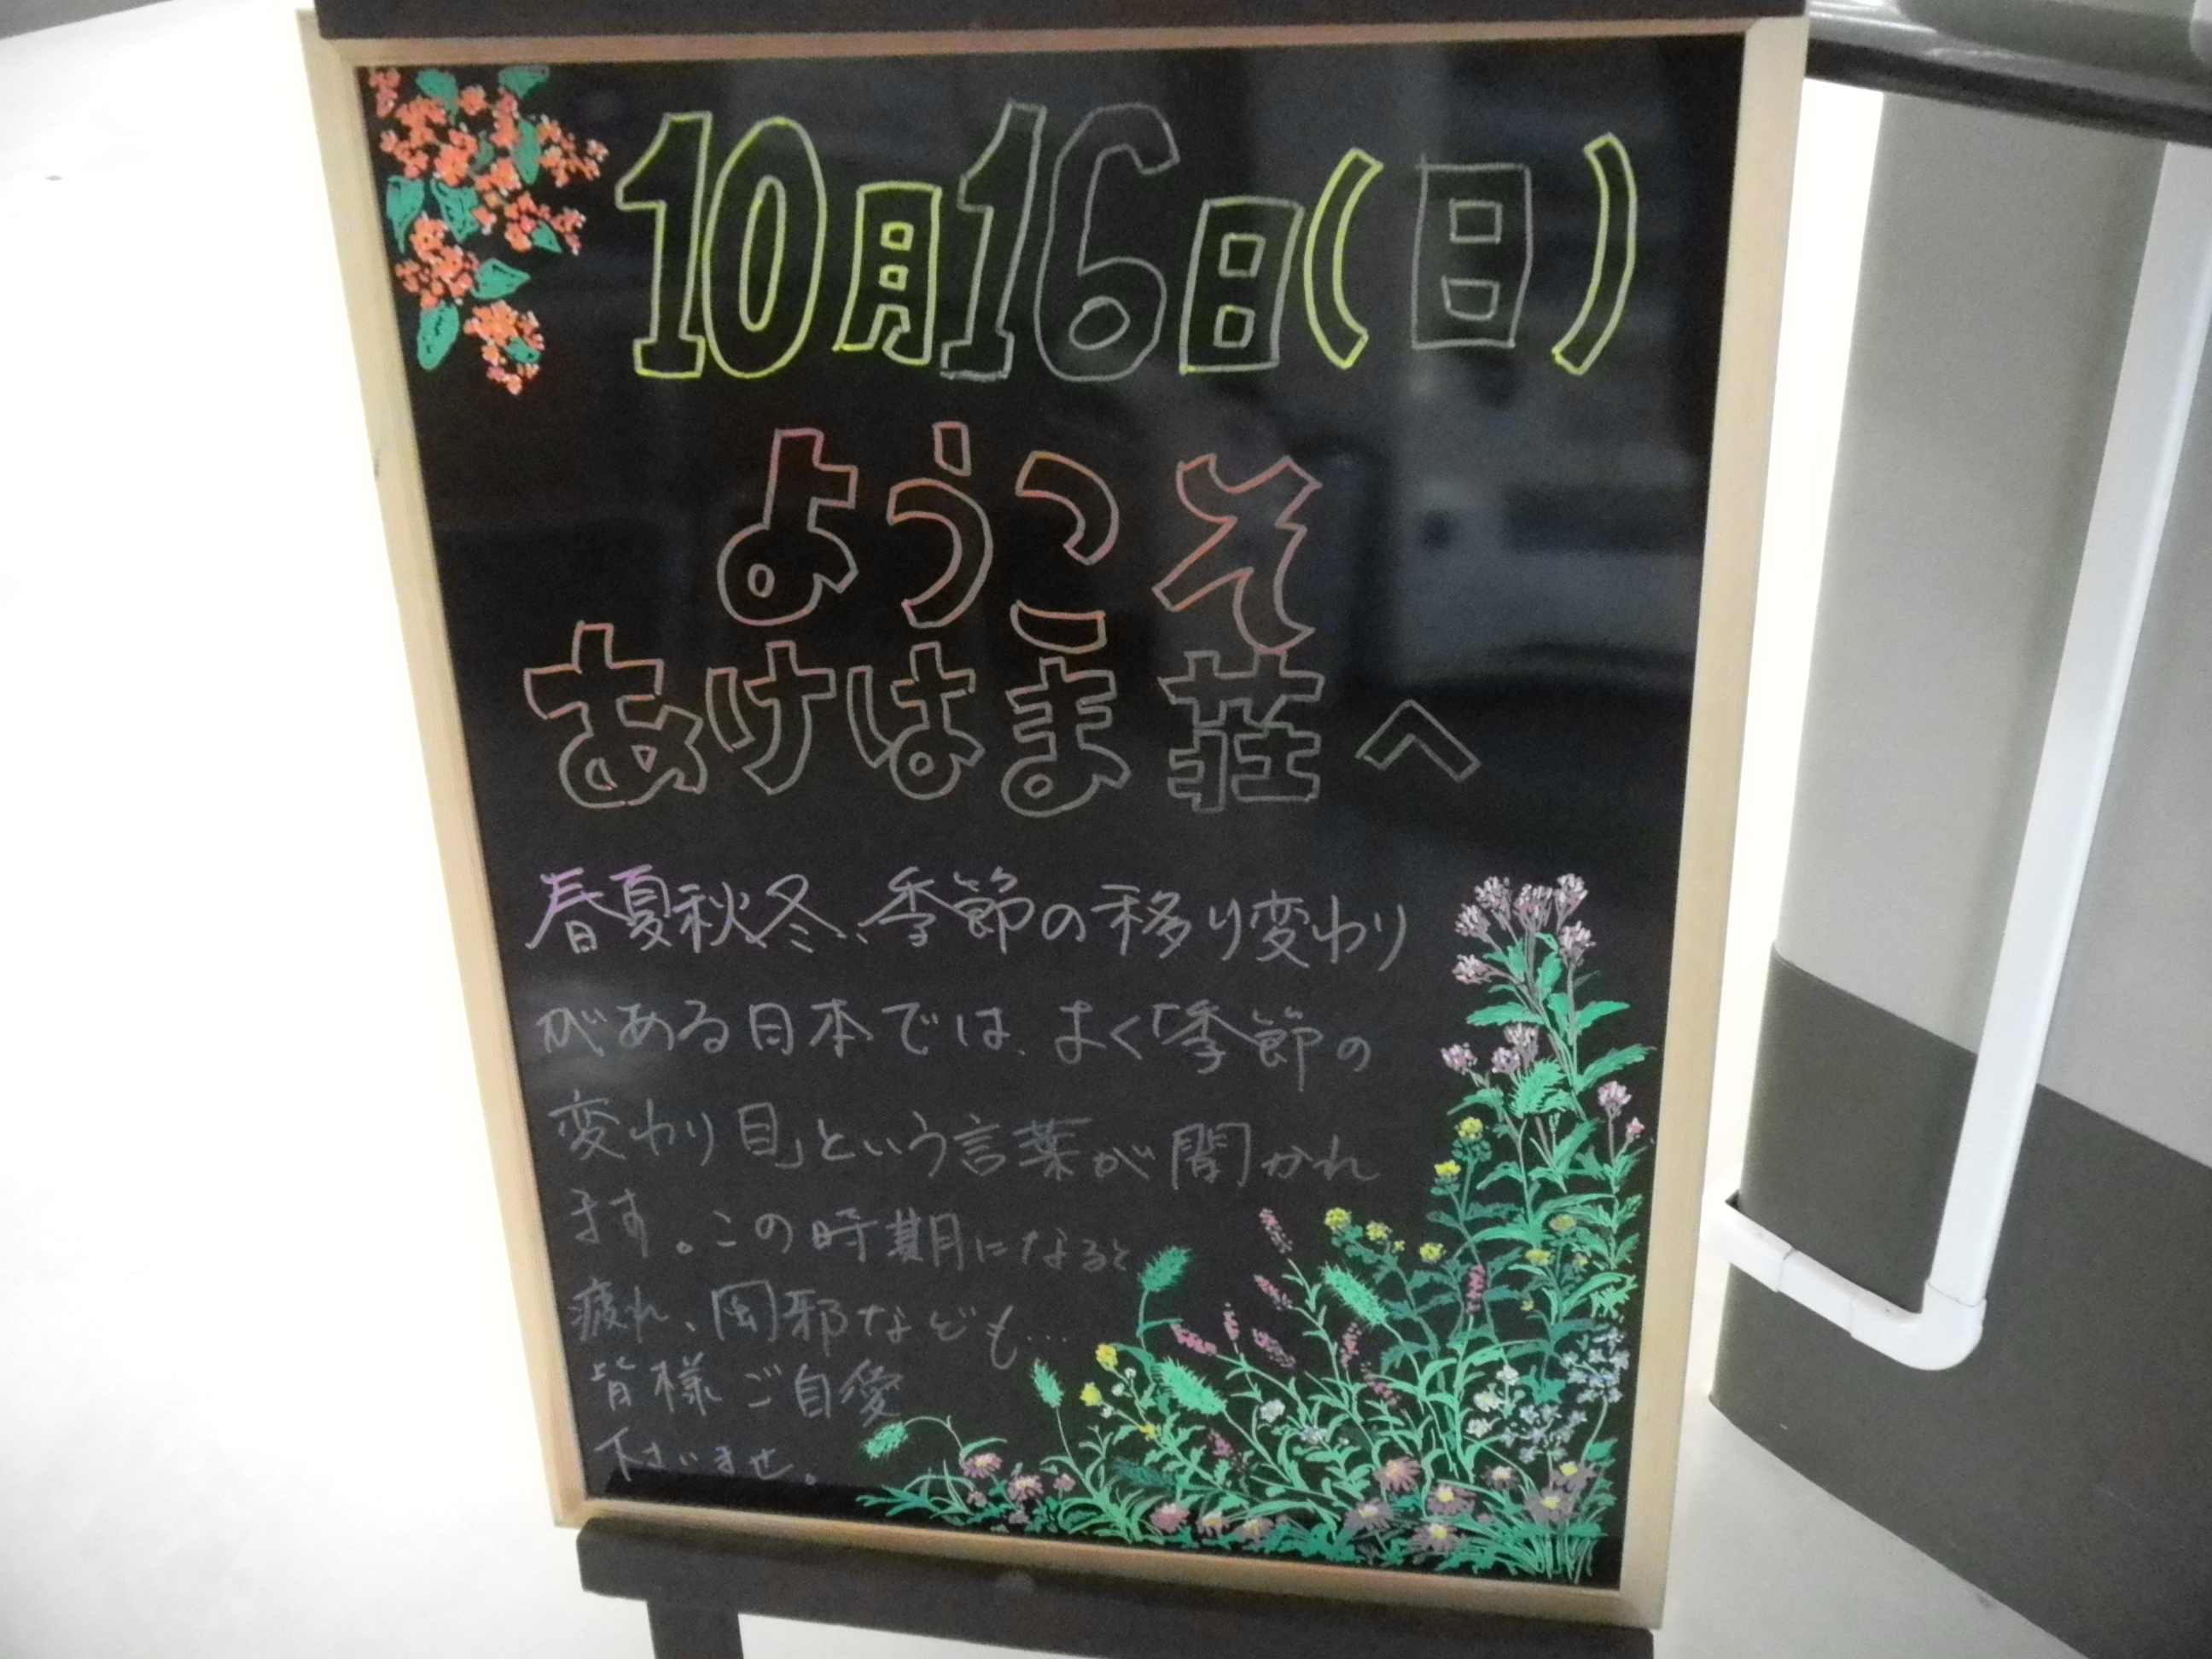 10月16日(日)
ようこそ
あけはま荘へ
春夏秋冬、季節の移り変わり
がある日本では、よく「季節の
変わり目」という言葉が聞かれ
ます。この時期になると
疲れ、風邪なども…
皆様ご自愛
下さいませ。